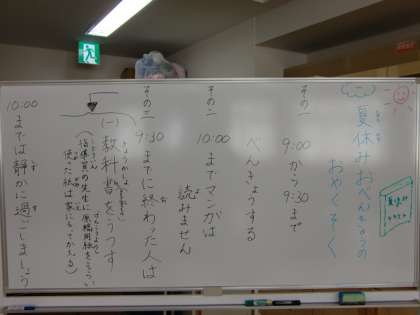 夏休みおべんきょうの
おやくそく
夏休み
その一
9:00から9:30まで
べんきょうする
その二
10:00までマンガは
読みません
その三
9:30までに終わった人は
(一)教科書をうつす
(指導員の先生に原稿用紙をもらい
使た紙は家にもってかえる)
10:00までは静かに過ごしましょう